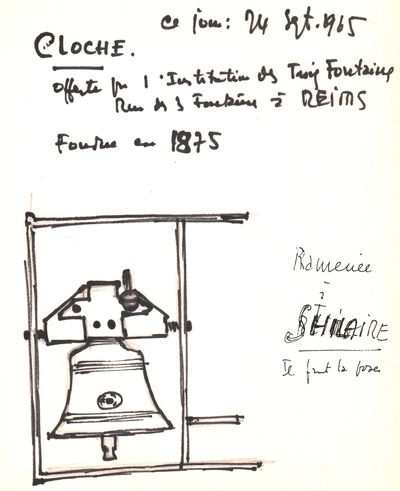 ce jour: 24 Sept. 1965
CLOCHE.
offerte par l'Institution des Trois Fontaines
Rue des 3 Fontaines à REIMS
Fondue en 1875
Ramenée
à
St HILAIRE
Il faut la poser